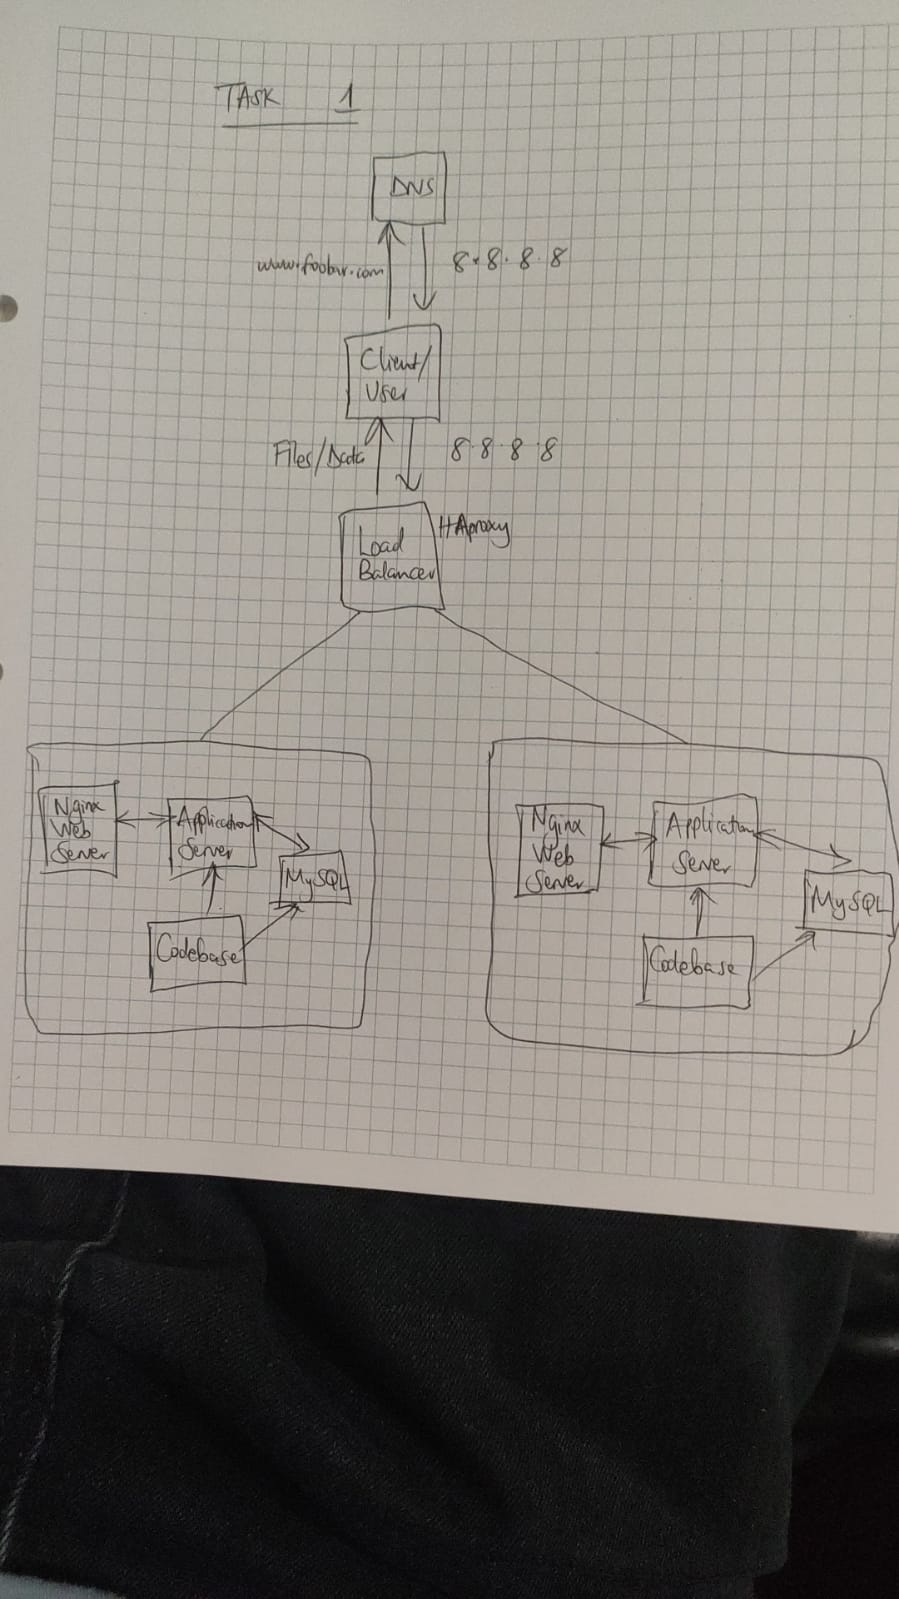 TASK 1
DNS
www.foobar.com
8.8.8.8
Client/
User
Files/Data
8.8.8.8
HAproxy
Load
Balancer
Nginx
Web
Server
Application
Server
MySQL
Codebase
Nginx
Web
Server
Application
Server
MySQL
Codebase